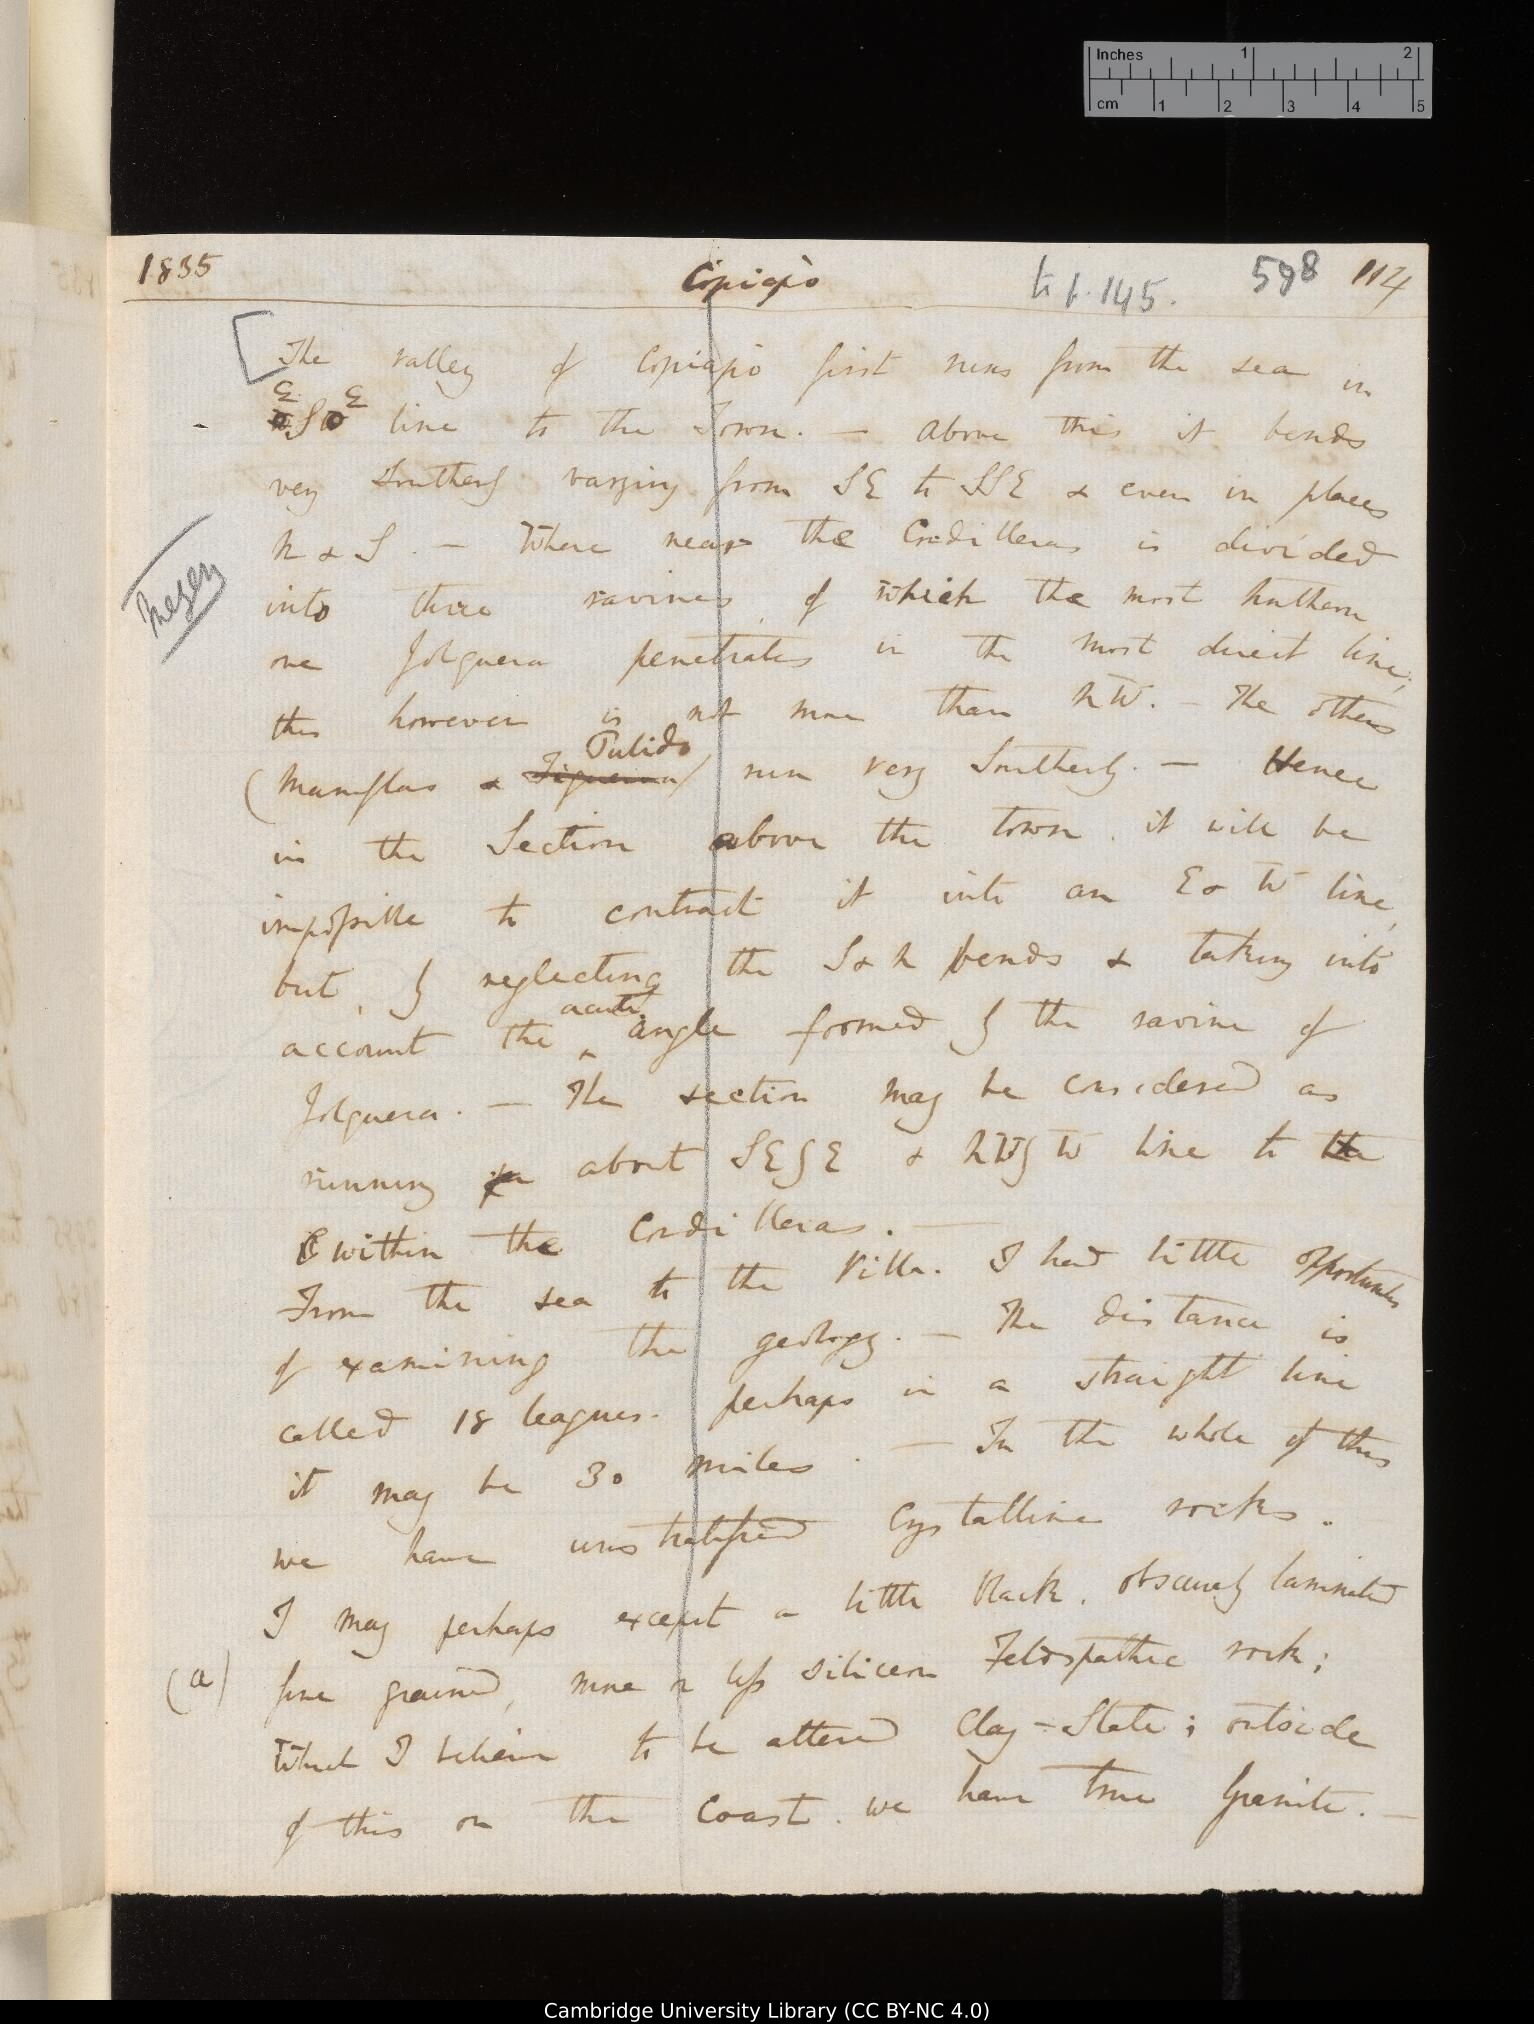 Inches 1 2
cm 1 2 3 4 5
1835 Copiapò to p. 145. 598 114
[The valley of Copiapò first runs from the sea in
E S E line to the Town. — above this it bends
very Southerly varying from SE to SSE & even in places
N & S. — Where near the Cordilleras is divided
into three ravines, of which the most Northern
one Jolquera penetrates in the most direct line;
this however is not more than NW. — The others
Pulido
(Manflas & Figueroa) run very Southerly. — Hence
in the Section above the town. it will be
impossible to contract it into an E & W line,
but, by neglecting the S & N bends & taking into
acute
account the ^ angle formed by the ravine of
Jolquera. — The section may be considered as
running in about SE by E & NW by W line to the
within the Cordilleras. —
From the sea to the Villa. I had little opportunities
of examining the geology. — The distance is
called 18 leagues. perhaps in a straight line
it may be 30 miles. — In the whole of this
we have unstratified Crystalline rocks.
I may perhaps except a little black. obscurely laminated
(a) fine grained, more or less siliceous Feldspathic rock;
Which I believe to be altered Clay-Slate; outside
of this on the Coast. we have true Granite. —
Cambridge University Library (CC BY-NC 4.0)